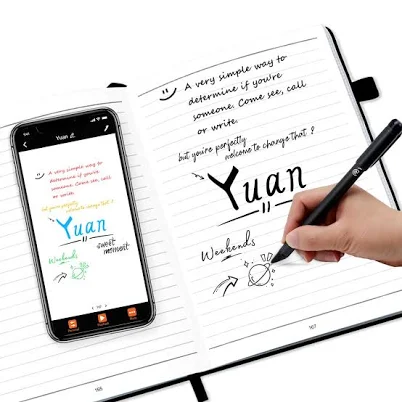 A very simple way to
determine if you're
someone. Come see, call
or write.
but you're perfectly
welcome to change that ?
Yuan
Weekends
167
Yuan
A very simple way to
determine if you're
someone. Come see, call
or write.
but you're perfectly
welcome to change that ?
Yuan
sweet
moment
Weekends